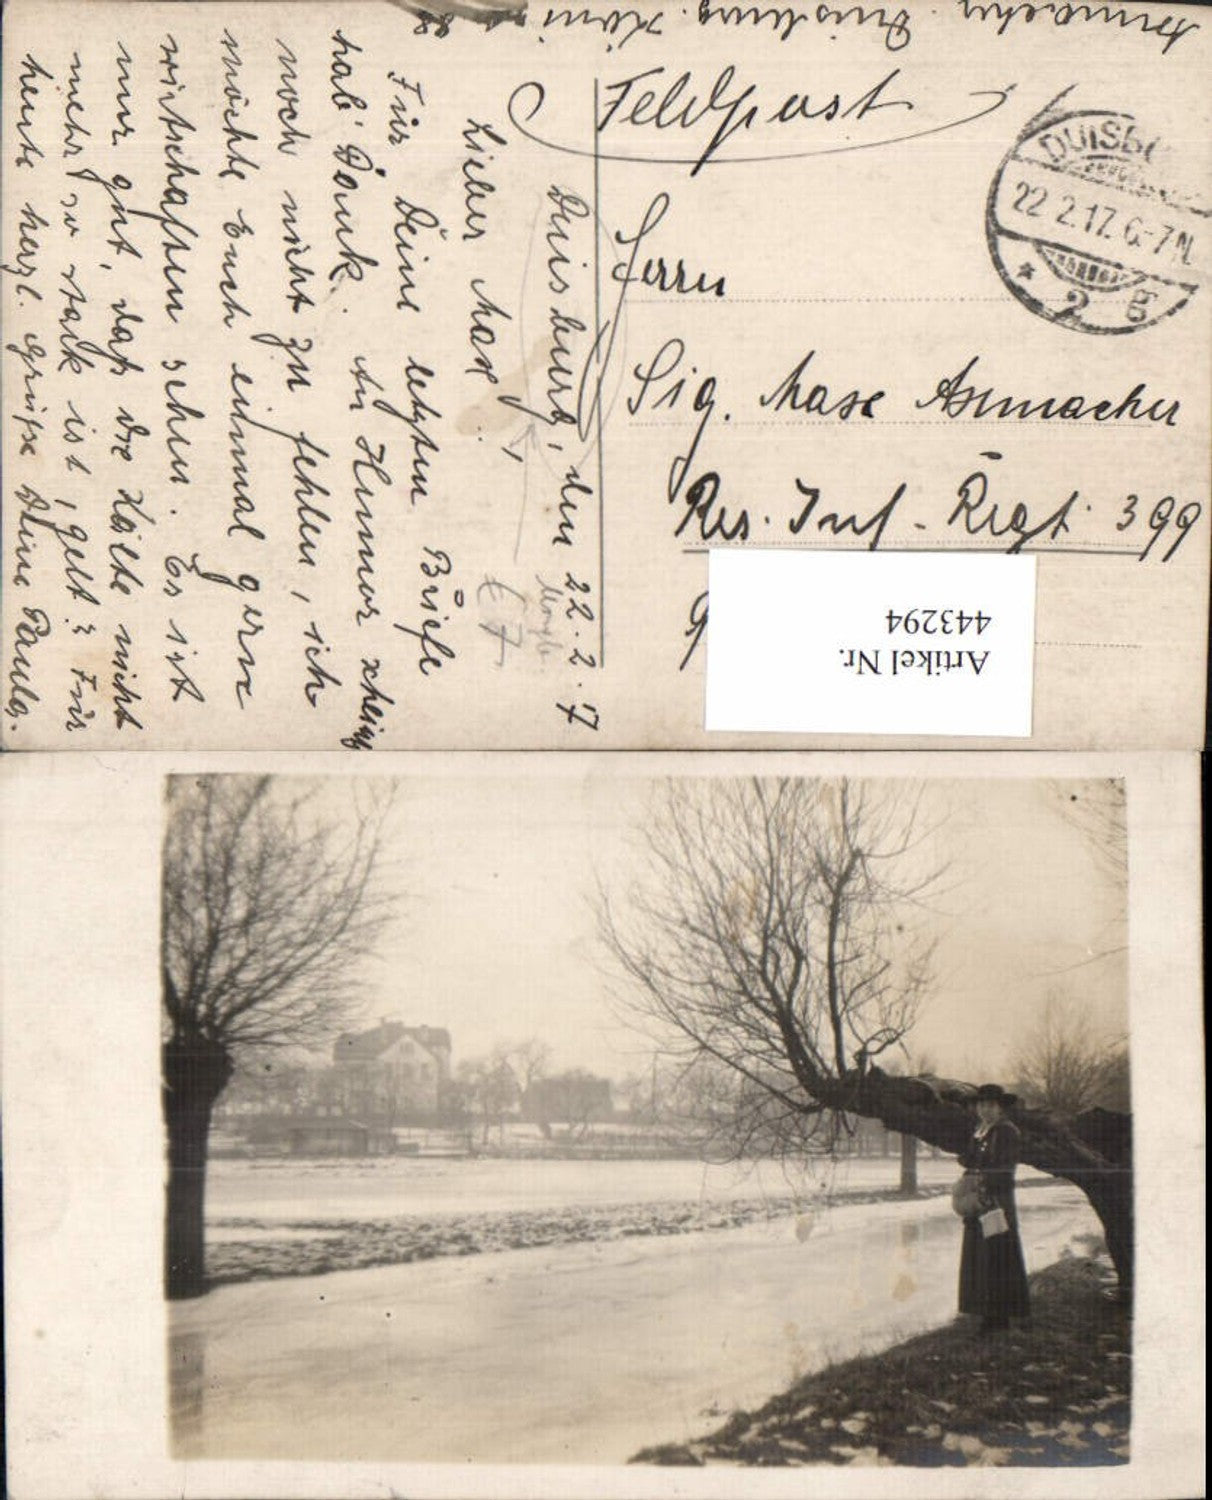 Asmacher. Duisburg.
Feldpost
DUISBU
22.2.17. 6-7N.
* 2 g
Herrn
Sig. Max Asmacher
Res. Inf. - Regt. 399
Artikel Nr.
443294
Duisburg, den 22. 2. 17
Lieber Max!
Für Deine letzten Briefe
hab Dank. An Humor scheint
noch nicht zu fehlen, ich
möchte Euch einmal gern
wirtschaften sehen. Es ist
nur gut, daß die Kälte nicht
mehr so stark ist, gelt? Für
heute herzl. Grüße Deine Paula.